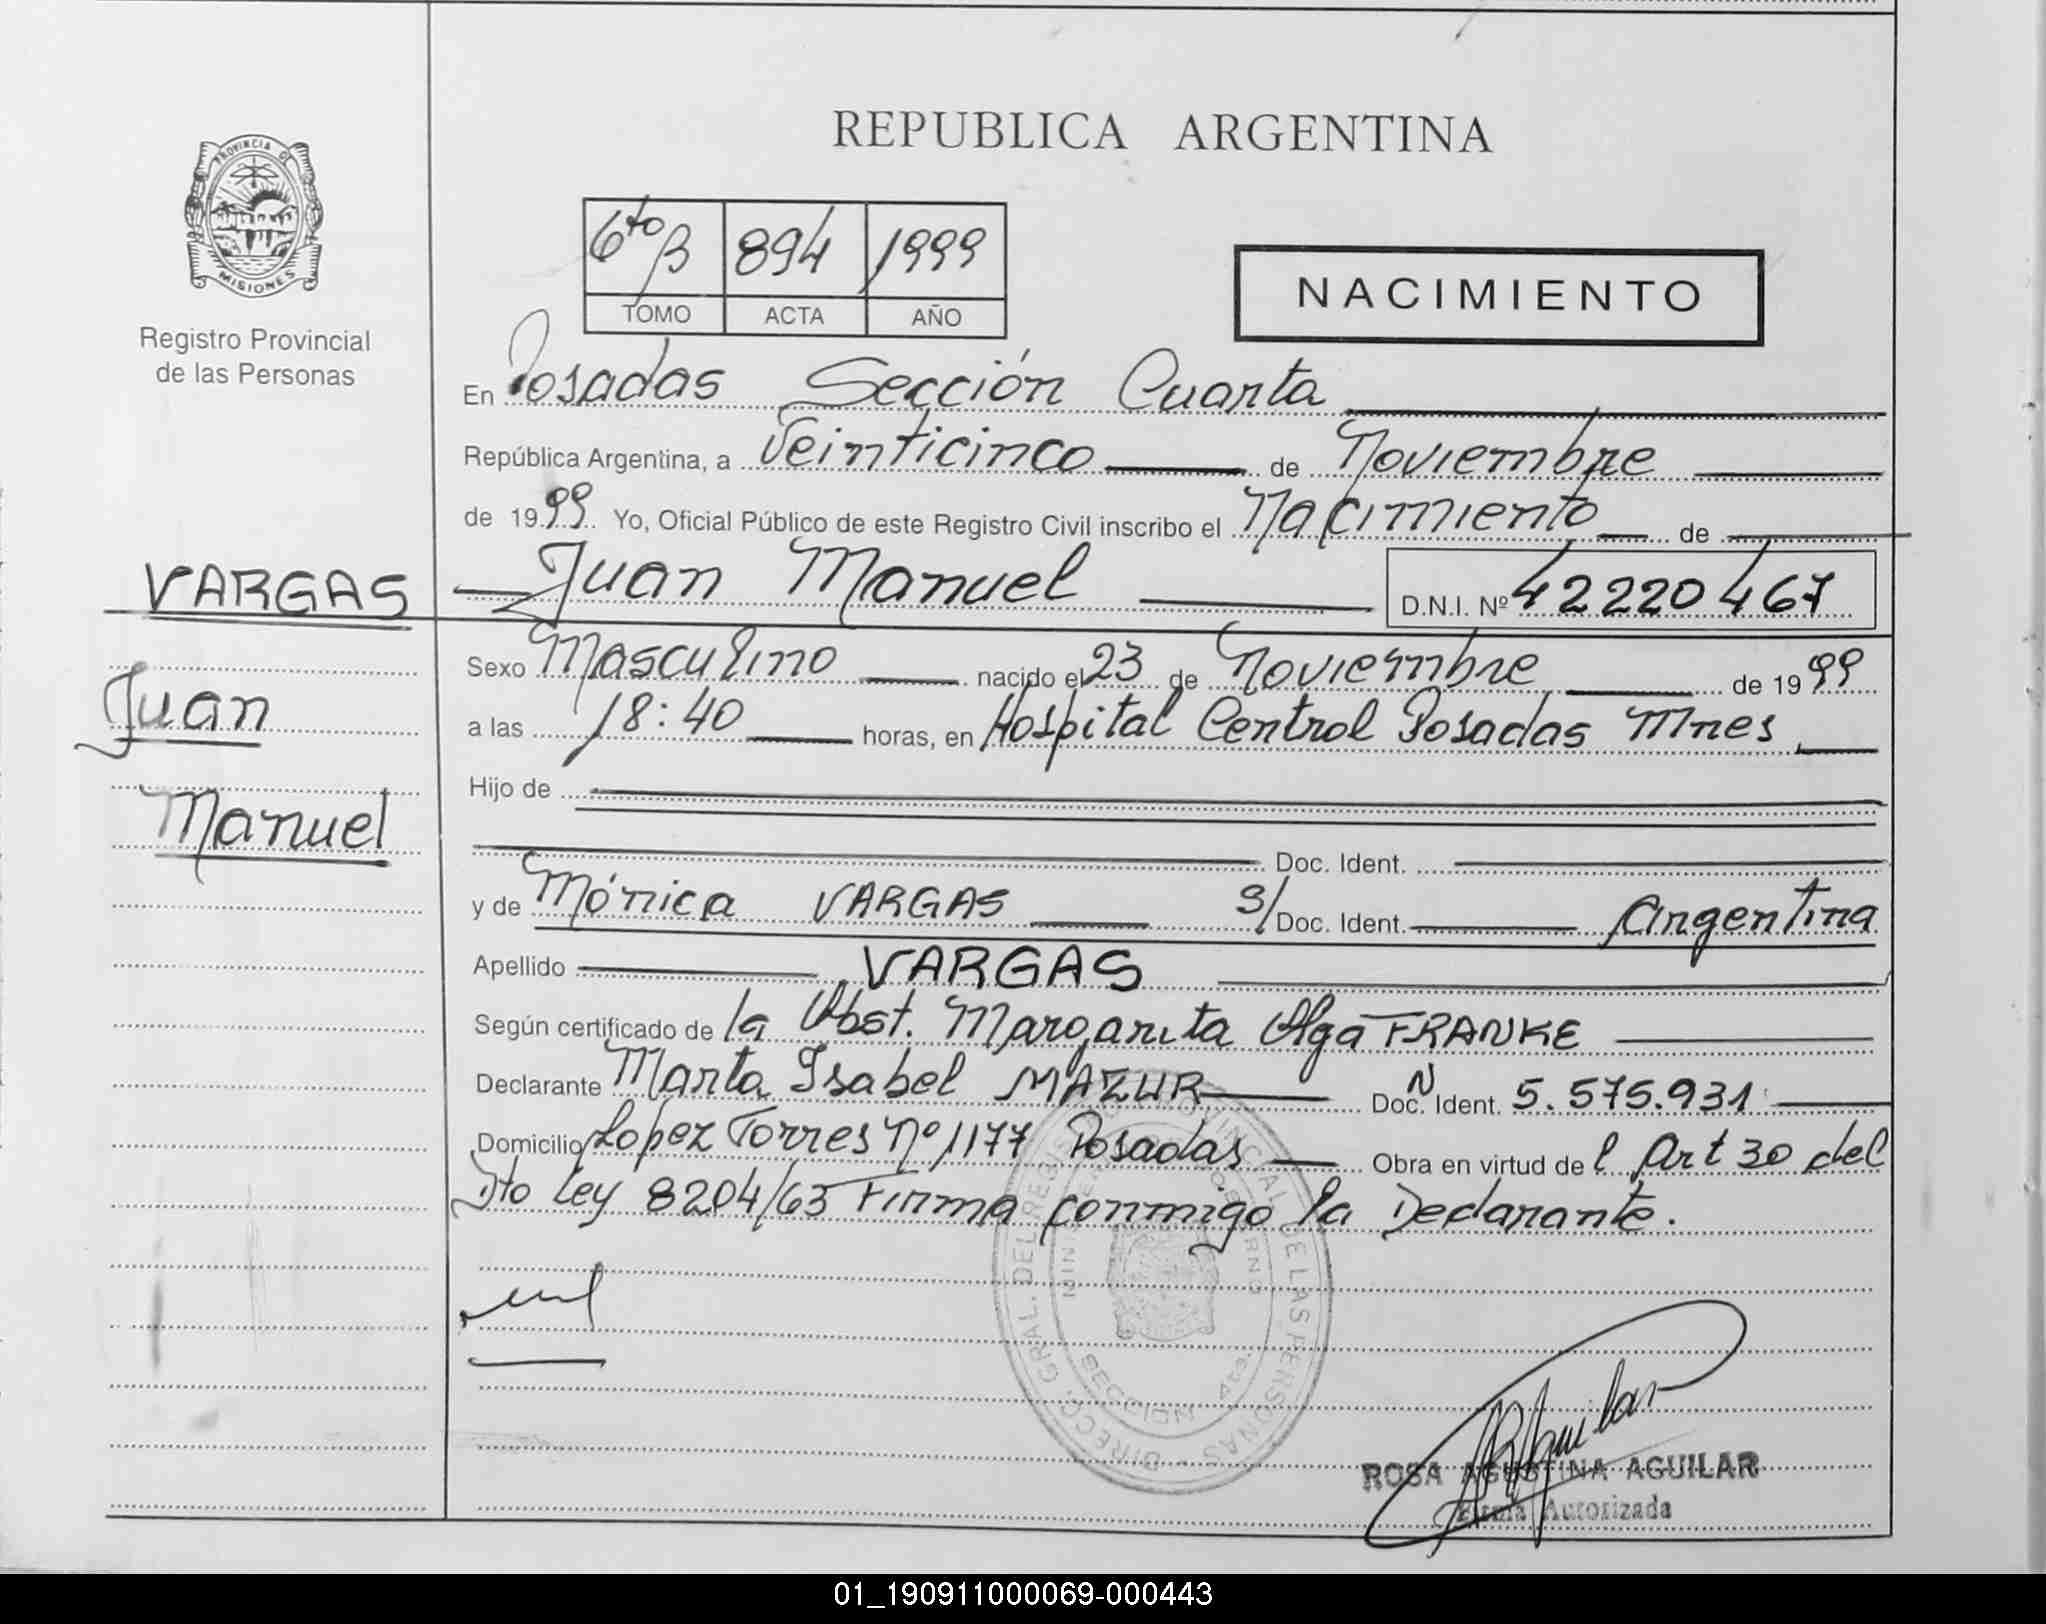 REPUBLICA ARGENTINA
PROVINCIA DE
MISIONES
Registro Provincial
de las Personas
6to B 894 1999
TOMO ACTA AÑO
NACIMIENTO
En Posadas Sección Cuarta
República Argentina, a Veinticinco de Noviembre
de 1999 Yo, Oficial Público de este Registro Civil inscribo el Nacimiento de
VARGAS
Juan Manuel D.N.I. Nº 42220467
Sexo Masculino nacido el 23 de Noviembre de 1999
Juan
a las 18:40 horas, en Hospital Central Posadas Mnes
Hijo de
Manuel
Doc. Ident.
y de Mónica VARGAS S/ Doc. Ident. Argentina
Apellido VARGAS
Según certificado de la Obst. Margarita Olga FRANKE
Declarante Marta Isabel MAZUR Doc. N Ident. 5.575.931
Domicilio Lopez Torres Nº 1177 Posadas Obra en virtud del Art 30 del
Dto Ley 8204/63 Firma conmigo la Declarante.
DIRECC. GRAL. DEL REGISTRO PROVINCIAL DE LAS PERSONAS
SECCION 4ta.
RAguilar
ROSA AGUSTINA AGUILAR
Firma Autorizada
01_190911000069-000443